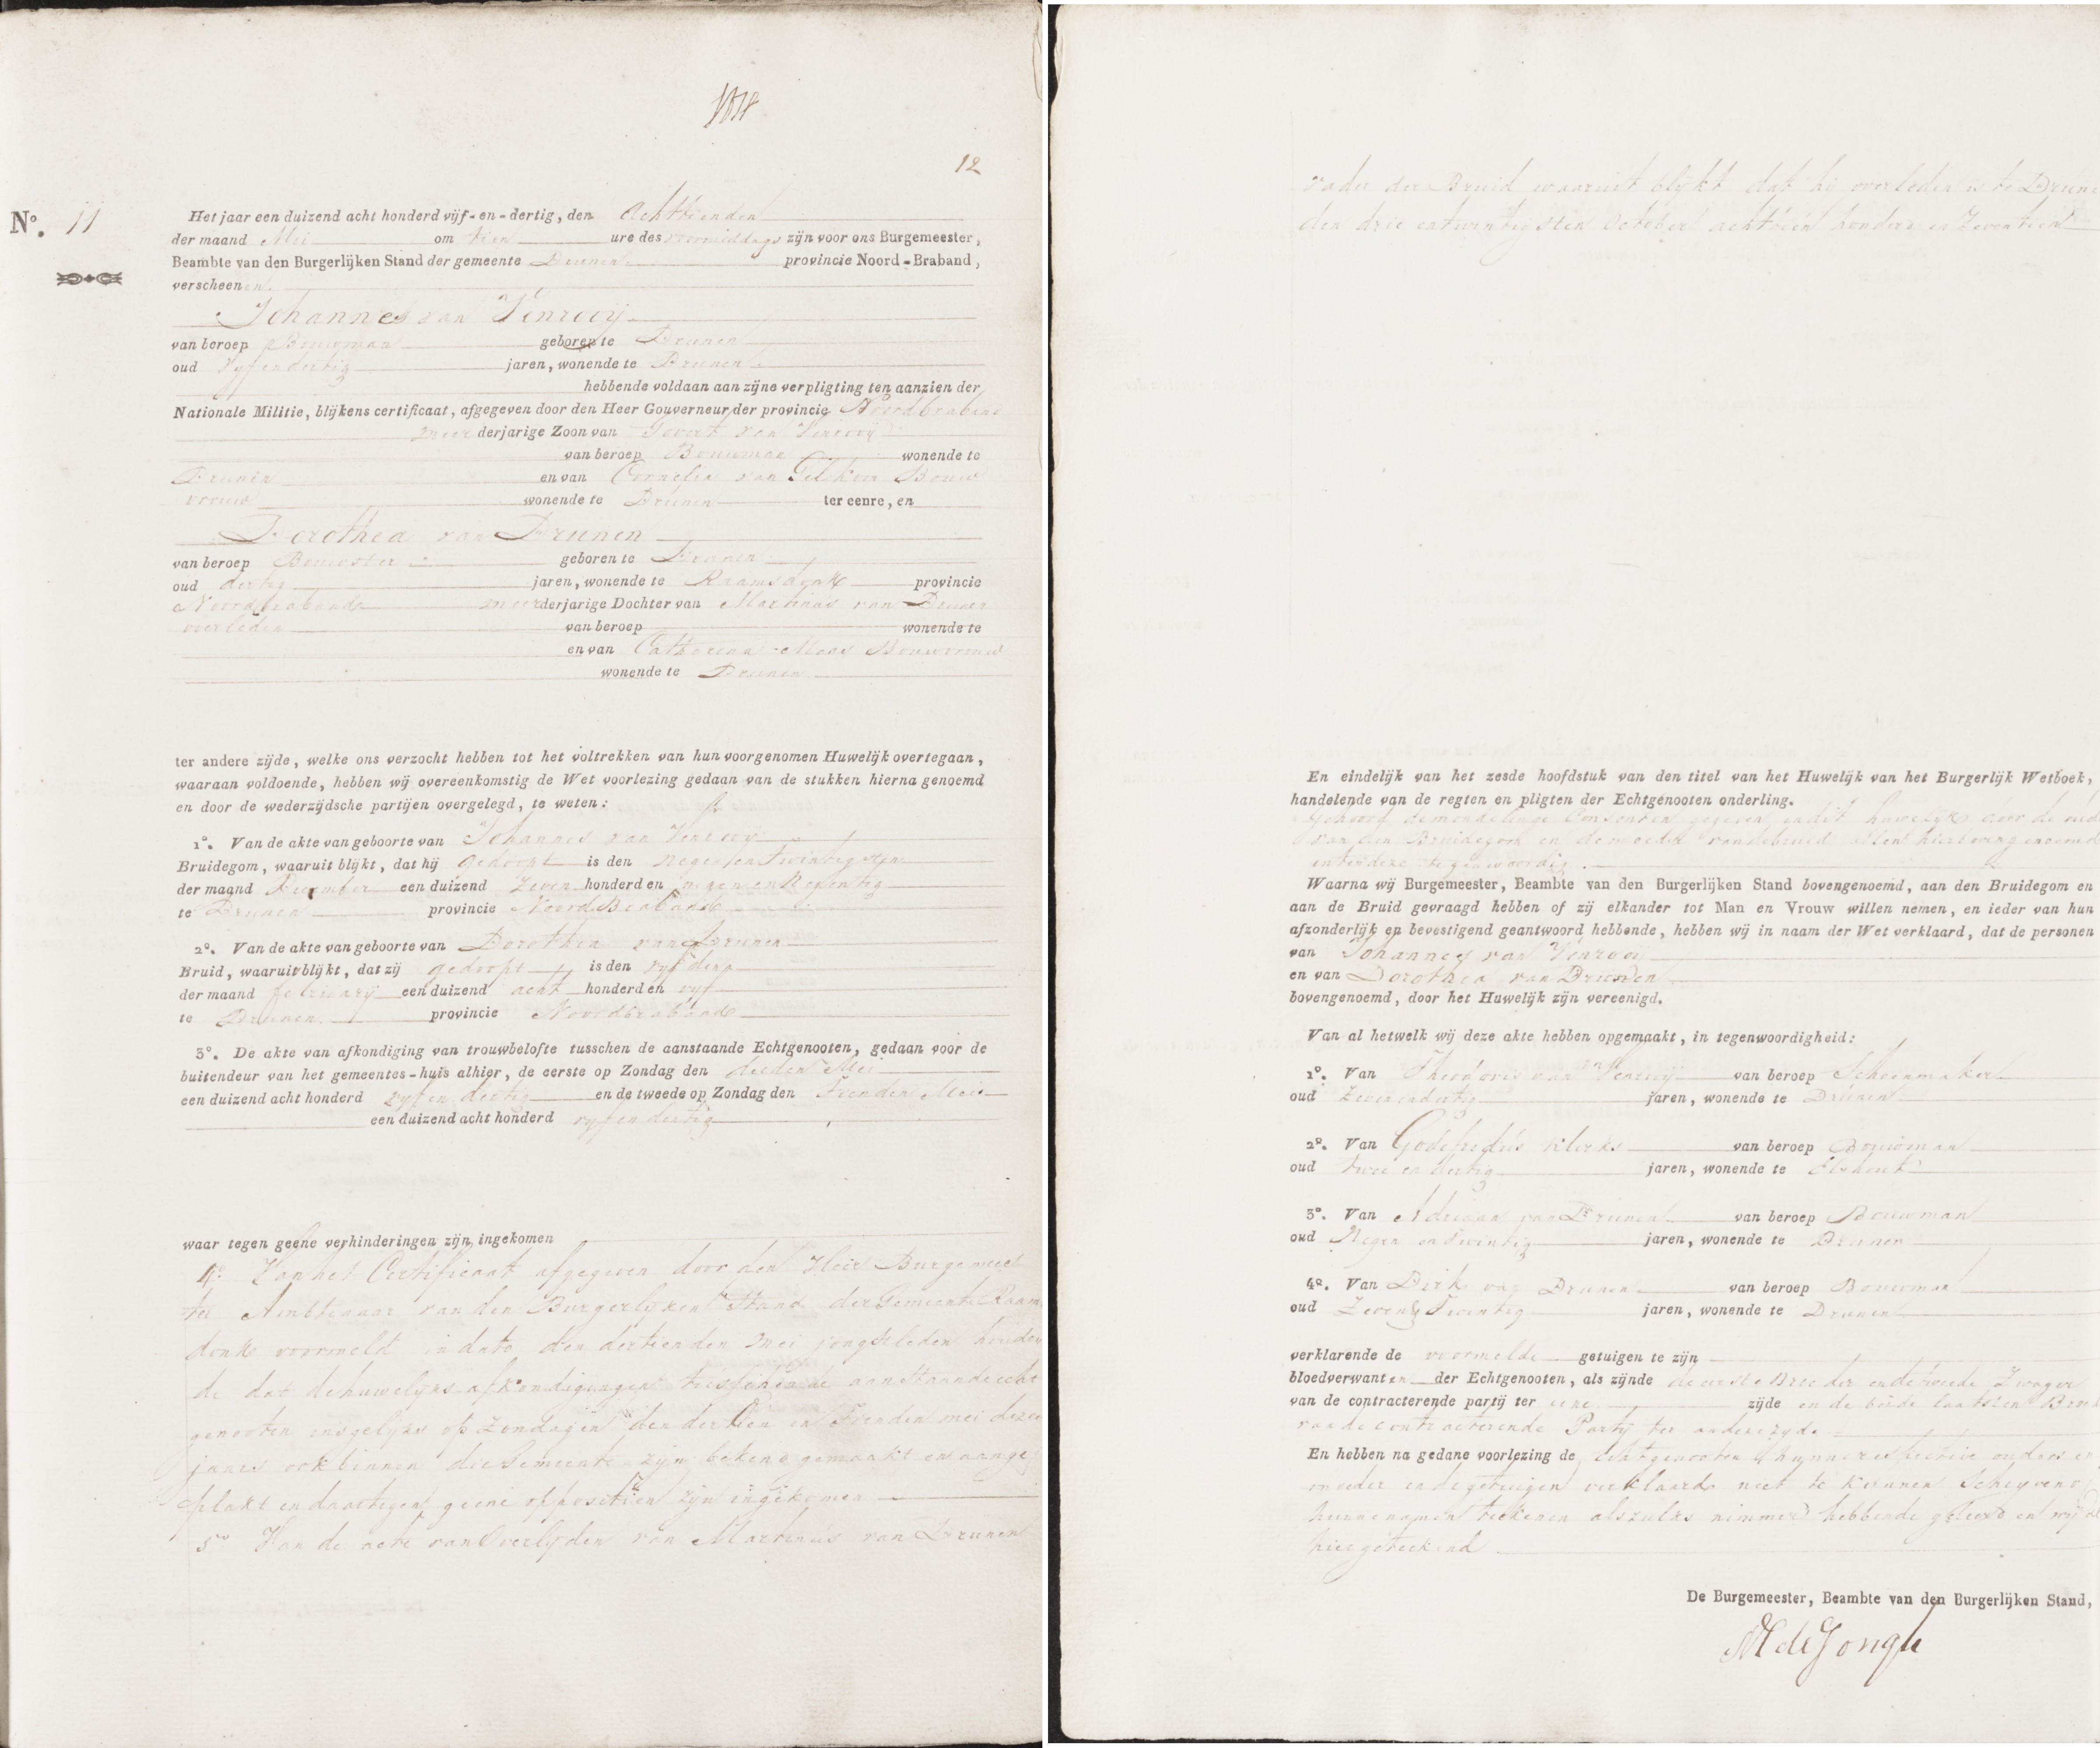 12
N.º 11
Het jaar een duizend acht honderd vijf-en-dertig, den Achttienden
der maand Mei om tien ure des voormiddags zijn voor ons Burgemeester,
Beambte van den Burgerlijken Stand der gemeente Drunen provincie Noord-Braband,
verscheenen.
Johannes van Venrooij
van beroep Bouwman geboren te Drunen
oud vyf en dertig jaren, wonende te Drunen
hebbende voldaan aan zijne verpligting ten aanzien der
Nationale Militie, blijkens certificaat, afgegeven door den Heer Gouverneur der provincie Noordbraband
meerderjarige Zoon van Govert van Venrooij
van beroep Bouwman wonende te
Drunen en van Cornelia van Bouw
vrouw wonende te Drunen ter eenre, en
Dorothea van Drunen
van beroep Bouwster geboren te Drunen
oud dertig jaren, wonende te Raamsdonk provincie
Noordbraband meerderjarige Dochter van Martinus van Drunen
overleden van beroep wonende te
en van Catharina Maas Bouwvrouw
wonende te Drunen
ter andere zijde, welke ons verzocht hebben tot het voltrekken van hun voorgenomen Huwelijk overtegaan,
waaraan voldoende, hebben wij overeenkomstig de Wet voorlezing gedaan van de stukken hierna genoemd
en door de wederzijdsche partijen overgelegd, te weten:
1º. Van de akte van geboorte van Johannes van Venrooij
Bruidegom, waaruit blijkt, dat hij gedoopt is den negen en twintigsten
der maand December een duizend zeven honderd en negen en Negentig
te Drunen provincie Noord Braband
2º. Van de akte van geboorte van Dorothea van Drunen
Bruid, waaruit blijkt, dat zij gedoopt is den vyfden
der maand februarij een duizend acht honderd en vyf
te Drunen provincie Noordbraband
3º. De akte van afkondiging van trouwbelofte tusschen de aanstaande Echtgenooten, gedaan voor de
buitendeur van het gemeentes-huis alhier, de eerste op Zondag den derden Mei
een duizend acht honderd vyf en dertig en de tweede op Zondag den tienden Mei
een duizend acht honderd vyf en dertig
waar tegen geene verhinderingen zijn ingekomen
4º Van het Certificaat afgegeven door den Heer Burgemees
ter Ambtenaar van den Burgerlyken Stand der Gemeente Raams
donk voormeld in dato den dertienden mei jongstleden houden
de dat de huwelyks afkondigingen tusschen de aanstaande echt
genooten insgelyks op Zondagen den derden en Tienden mei dezes
jaars ook binnen die Gemeente zyn bekend gemaakt en aange
plakt en daartegen geene oppositien zyn ingekomen
5º Van de acte van Overlyden van Martinus van Drunen
vader der Bruid waaruit blykt dat hij overleden is te Drunen
den drie en twintigsten October achttien honderd en Zeventien
En eindelijk van het zesde hoofdstuk van den titel van het Huwelijk van het Burgerlijk Wetboek,
handelende van de regten en pligten der Echtgenooten onderling.
Gehoord de mondelinge Consenten gegeven in dit huwelyk door de oud
van den Bruidegom en de moeder van de bruid allen hierboven genoemd
en ten deze tegenwoordig.
Waarna wij Burgemeester, Beambte van den Burgerlijken Stand bovengenoemd, aan den Bruidegom en
aan de Bruid gevraagd hebben of zij elkander tot Man en Vrouw willen nemen, en ieder van hun
afzonderlijk en bevestigend geantwoord hebbende, hebben wij in naam der Wet verklaard, dat de personen
van Johannes van Venrooij
en van Dorothea van Drunen
bovengenoemd, door het Huwelijk zijn vereenigd.
Van al hetwelk wij deze akte hebben opgemaakt, in tegenwoordigheid:
1º. Van Theodorus van Venrooij van beroep Schoenmaker
oud Zeven en dertig jaren, wonende te Drunen
2º. Van Godefridus Klerks van beroep Bouwman
oud twee en dertig jaren, wonende te Elshout
3º. Van Adriaan van Drunen van beroep Bouwman
oud Negen en twintig jaren, wonende te Drunen
4º. Van Dirk van Drunen van beroep Bouwman
oud Zeven & Twintig jaren, wonende te Drunen
verklarende de voormelde getuigen te zijn
bloedverwanten der Echtgenooten, als zijnde de eerste Broeder en de tweede Zwager
van de contracterende partij ter eene zijde en de beide laatsten Broed
van de contracterende Party ter andere zyde
En hebben na gedane voorlezing de Echtgenooten hunne respectie ouders en
moeder en de getuigen verklaard niet te kunnen Schryven of
hunne namen teekenen als zulks nimmer hebbende geleerd en wij al
hier geteekend
De Burgemeester, Beambte van den Burgerlijken Stand,
de Jongh